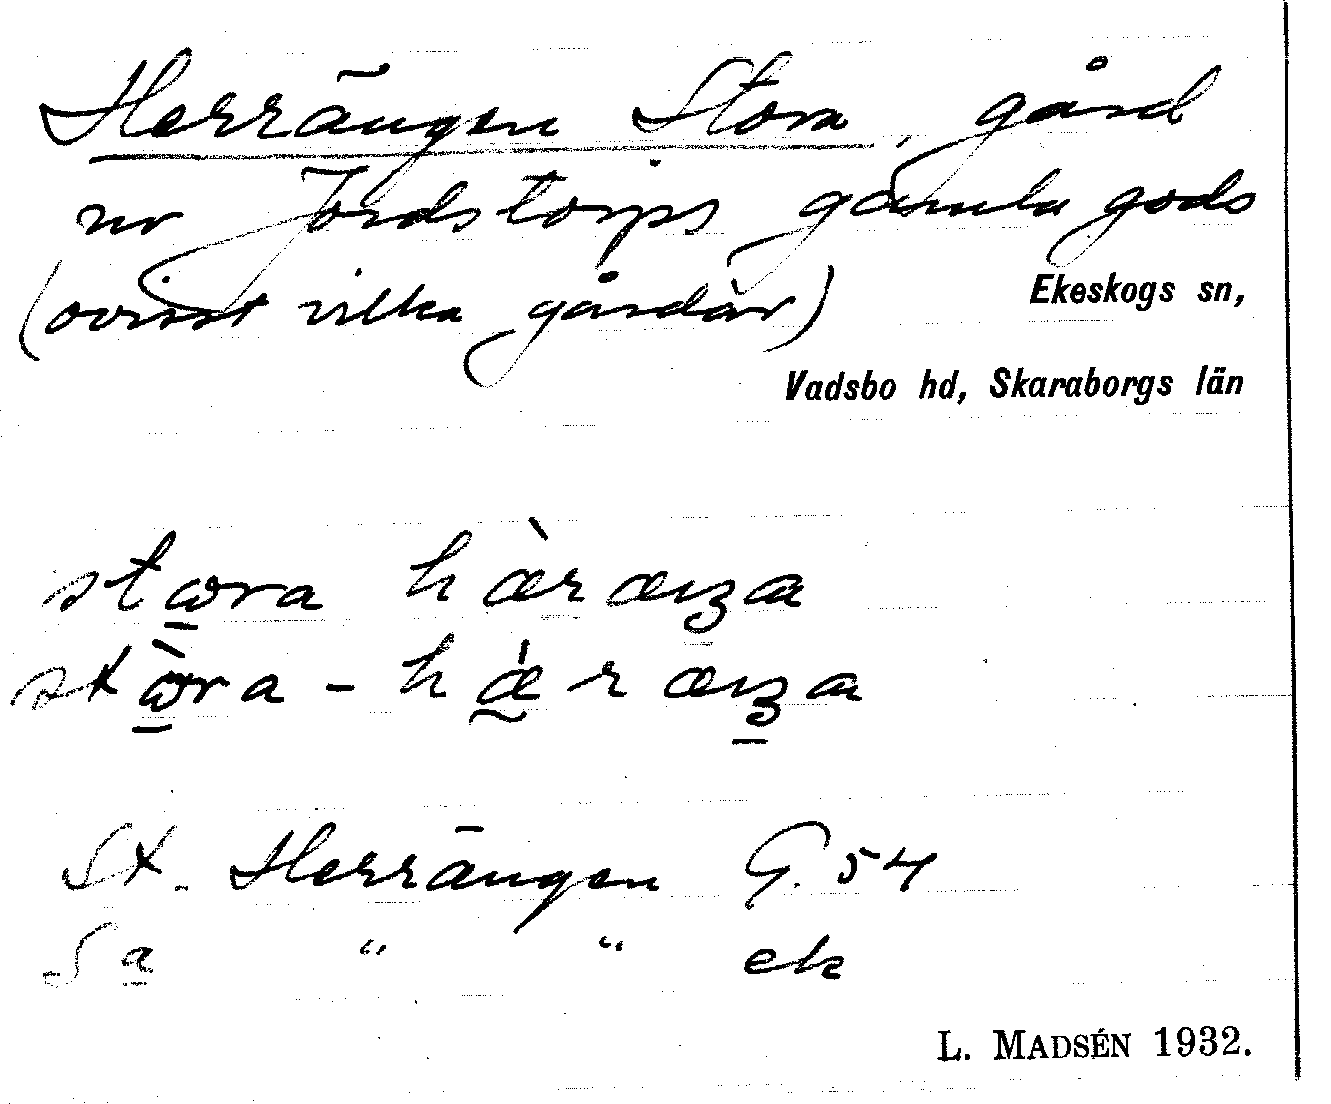 Herrängen Stora, gård
nr Jordstorps gamla gods
(ovisst vilka gårdar)
Ekeskogs sn,
Vadsbo hd, Skaraborgs län
stω̱ra hæ̀ræŋa
stὼ̱ra - hǽræŋa
St. Herrängen G. 54
Sa " " ek
L. MADSÉN 1932.